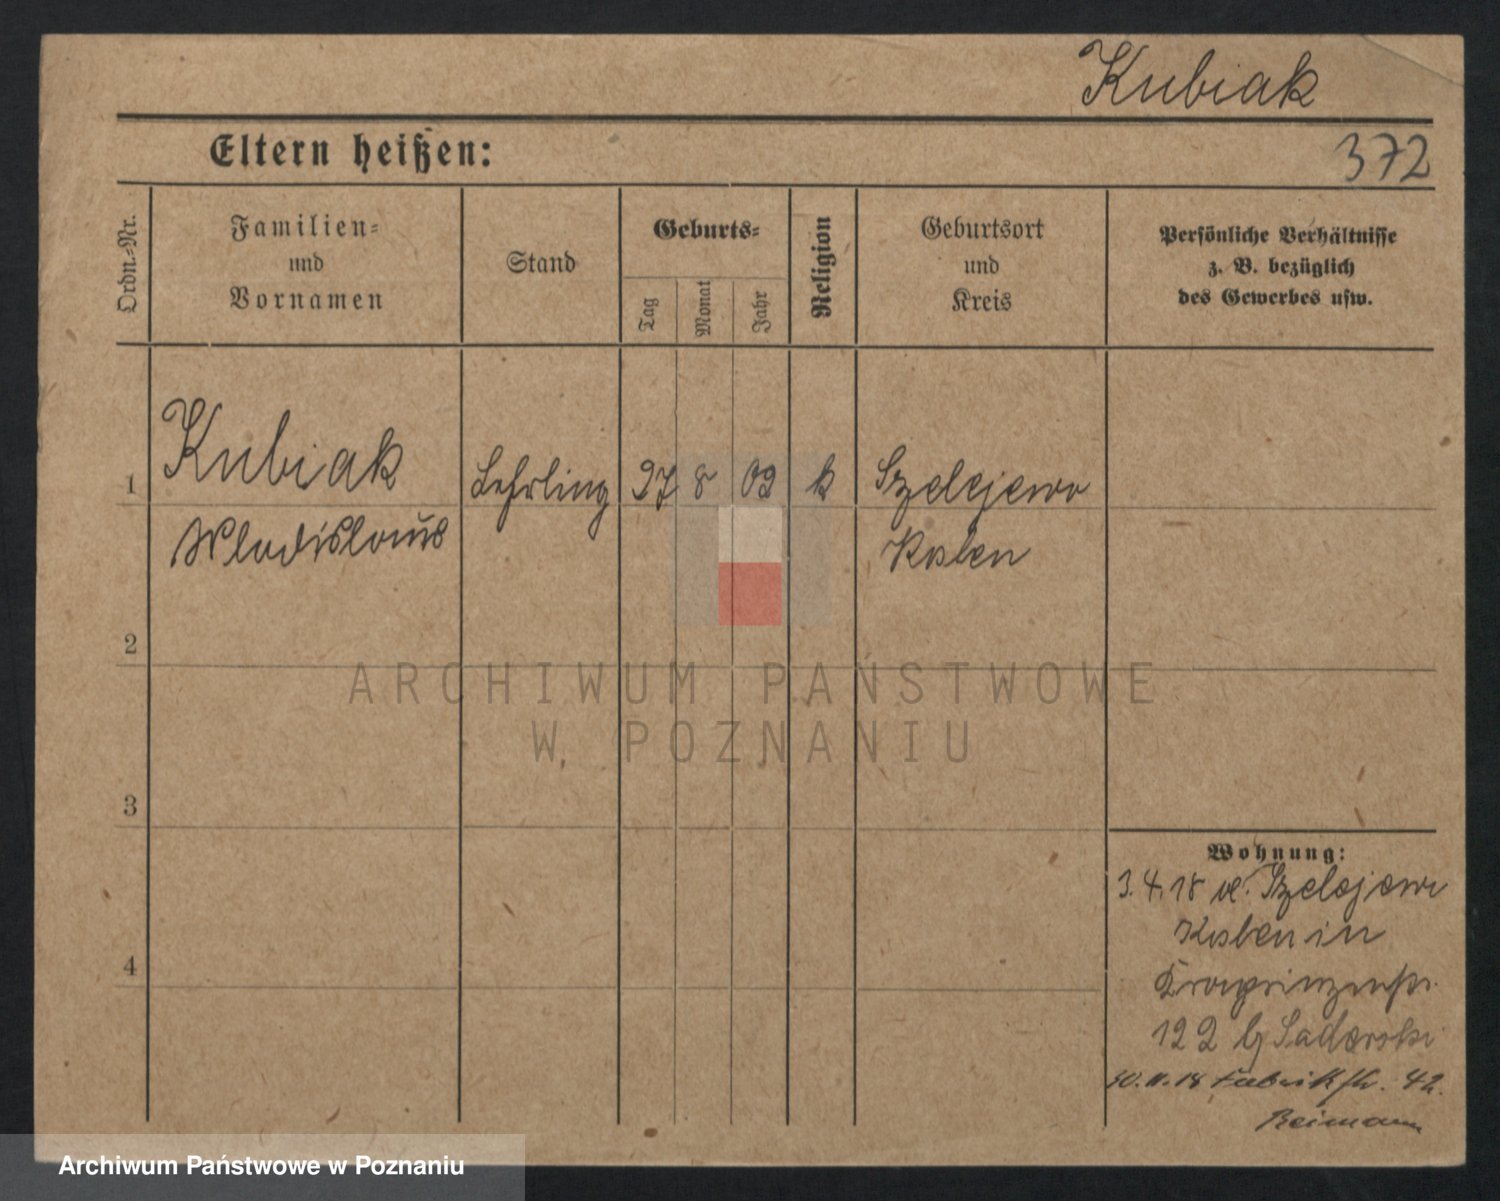 Kubiak
Eltern heißen:
372
Ordn.-Nr.
Familien-
und
Vornamen
Stand
Geburts-
Tag
Monat
Jahr
Religion
Geburtsort
und
Kreis
Persönliche Verhältnisse
z. B. bezüglich
des Gewerbes usw.
1
Kubiak
Lehrling
27
8
02
k
Szelejewo
Wladislaus
Koben
2
ARCHIWUM PAŃSTWOWE
W POZNANIU
3
Wohnung:
3.4.18 Szelejewo
Koben in
4
Kronprinzenstr.
122 Sadowski
30.11.18 Fabrikstr. 42.
Reimann
Archiwum Państwowe w Poznaniu